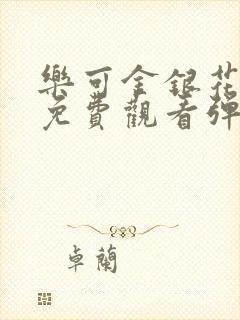 樂可金銀花
免費觀看彈
卓蘭